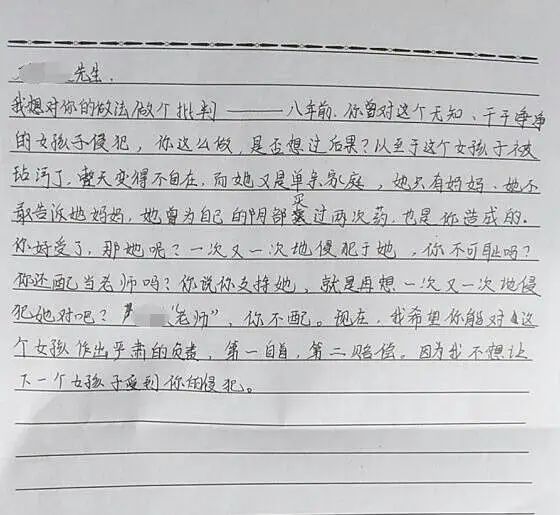 先生.
我想对你的做法做个批判——八年前.你曾对这个无知、干干净净
的女孩子侵犯，你这么做，是否想过后果？以至于这个女孩子被
玷污了，整天变得不自在，而她又是单亲家庭，她只有妈妈、她不
敢告诉她妈妈，她曾为自己的阴部买过两次药，也是你造成的.
你好受了，那她呢？一次又一次地侵犯于她，你不可耻吗？
你还配当老师吗？你说你支持她，就是再想一次又一次地侵
犯她对吧？“老师”，你不配。现在，我希望你能对这
个女孩作出严肃的负责，第一自首，第二赔偿。因为我不想让
下一个女孩子受到你的侵犯。